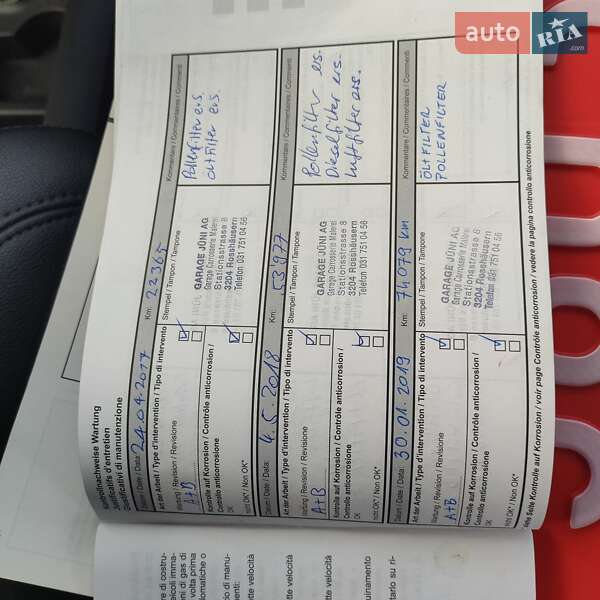 auto
RIA
.com
Kontrollnachweise Wartung
Justificatifs d'entretien
Giustificativi di manutenzione
Datum / Date / Data: 24.04.2017
Km: 22365
Art der Arbeit / Type d'intervention / Tipo di intervento
Stempel / Tampon / Tampone
Kommentare / Commentaires / Commenti
Wartung / Revision / Revisione
Kontrolle auf Korrosion / Contrôle anticorrosion /
Controllo anticorrosione
OK
nicht OK* / Non OK*
GARAGE JÜNI AG
Garage Carrosserie Malerei
Stationsstrasse 8
3204 Rosshäusern
Telefon 031 751 04 56
Pollenfilter ers.
ölfilter ers.
Datum / Date / Data: 4.5.2018
Km: 53927
Art der Arbeit / Type d'intervention / Tipo di intervento
Stempel / Tampon / Tampone
Kommentare / Commentaires / Commenti
Wartung / Revision / Revisione
A+B
Kontrolle auf Korrosion / Contrôle anticorrosion /
Controllo anticorrosione
OK
nicht OK* / Non OK*
GARAGE JÜNI AG
Garage Carrosserie Malerei
Stationsstrasse 8
3204 Rosshäusern
Telefon 031 751 04 56
Pollenfilter ers.
Dieselfilter ers.
Luftfilter ers.
Datum / Date / Data: 30.01.2019
Km: 74079 km
Art der Arbeit / Type d'intervention / Tipo di intervento
Stempel / Tampon / Tampone
Kommentare / Commentaires / Commenti
Wartung / Revision / Revisione
A+B
Kontrolle auf Korrosion / Contrôle anticorrosion /
Controllo anticorrosione
OK
nicht OK* / Non OK*
GARAGE JÜNI AG
Garage Carrosserie Malerei
Stationsstrasse 8
3204 Rosshäusern
Telefon 031 751 04 56
ÖLFILTER
POLLENFILTER
Siehe Seite Kontrolle auf Korrosion / voir page Contrôle anticorrosion / vedere la pagina controllo anticorrosione
re di costru-
eicoli imma-
ni di gas di
volta prima
domatiche o
io di manu-
enti:
tte velocità
tte velocità
tte velocità
quinamento
tarlo su ri-